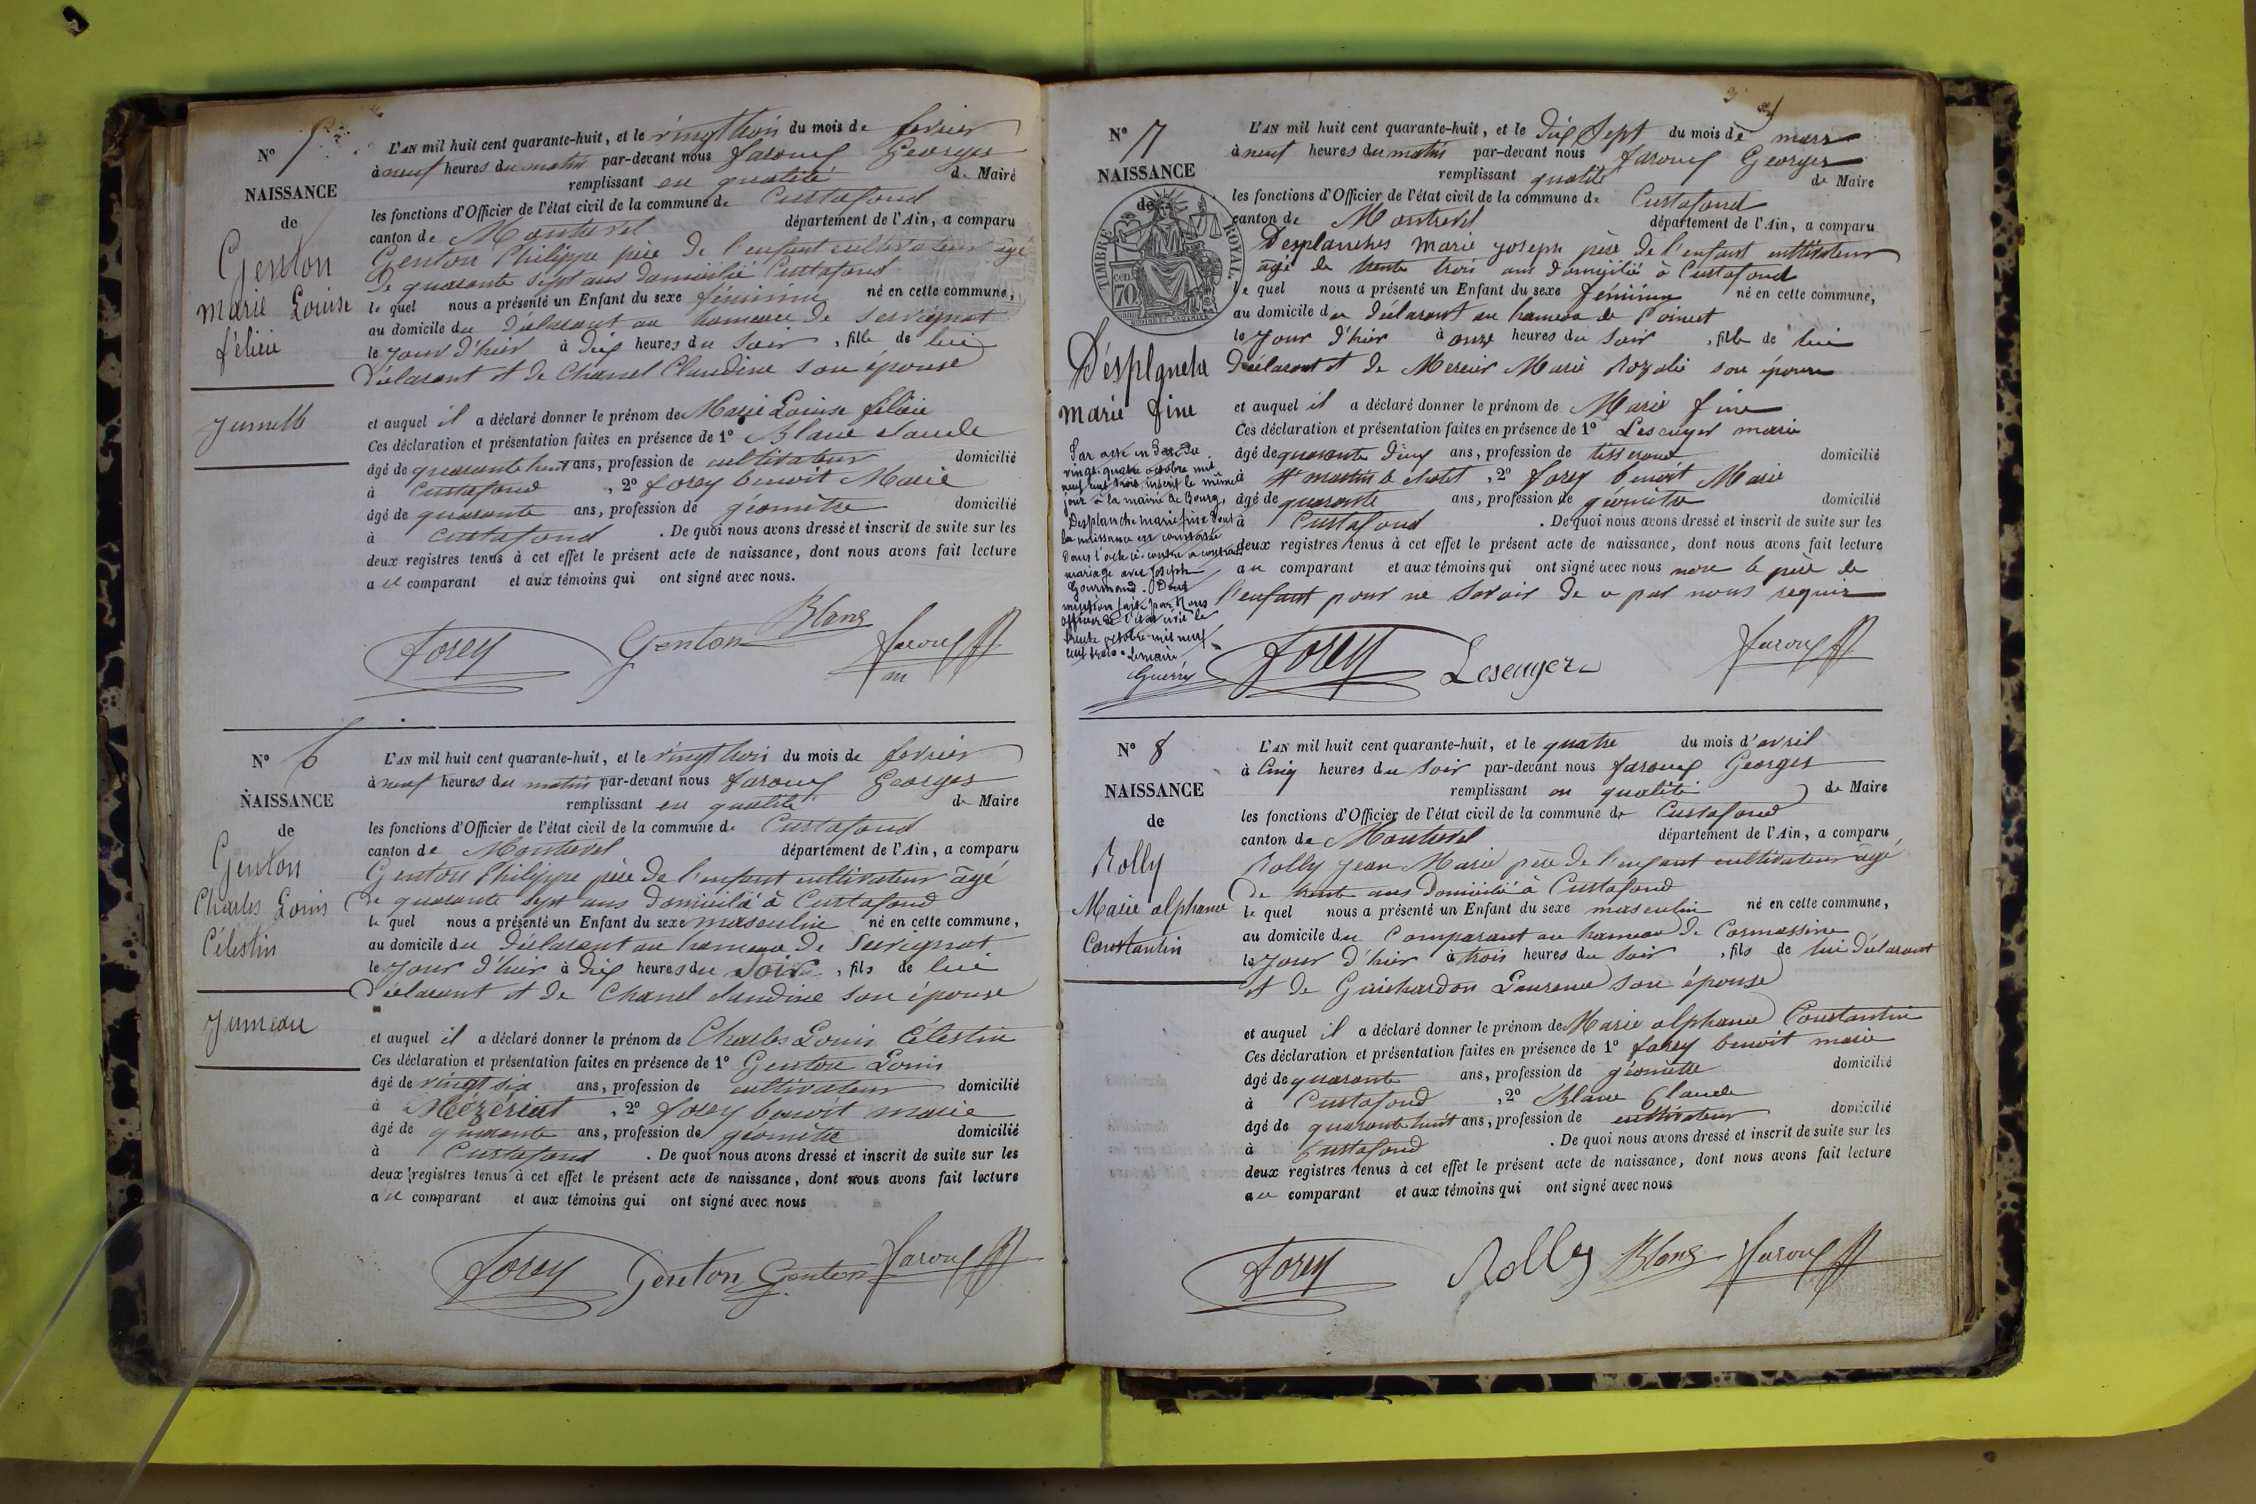 N° 5
NAISSANCE
de
Genton
Marie Louise
félicie
Jumelle
L'AN mil huit cent quarante-huit, et le vingt trois du mois de fevrier
à neuf heures du matin par-devant nous faroux Georges
remplissant en qualité de Maire
les fonctions d'Officier de l'état civil de la commune de Curtafond
canton de Montrevel département de l'Ain, a comparu
Genton Philippe père de l'enfant cultivateur agé
de quarante sept ans domicilié Curtafond
le quel nous a présenté un Enfant du sexe féminin né en cette commune,
au domicile du déclarant au hameau de Servignat
le jour d'hier à dix heures du soir, fille de lui
déclarant et de Chanel Claudine son épouse
et auquel il a déclaré donner le prénom de Marie Louise félicie
Ces déclaration et présentation faites en présence de 1° Blanc claude
âgé de quarante huit ans, profession de cultivateur domicilié
à Curtafond, 2° forey benoit Marie
âgé de quarante ans, profession de géomètre domicilié
à Curtafond. De quoi nous avons dressé et inscrit de suite sur les
deux registres tenus à cet effet le présent acte de naissance, dont nous avons fait lecture
au comparant et aux témoins qui ont signé avec nous.
Forey Genton Blanc faroux
N° 6
NAISSANCE
de
Genton
Charles Louis
Célestin
Jumeau
L'AN mil huit cent quarante-huit, et le vingt trois du mois de fevrier
à neuf heures du matin par-devant nous faroux Georges
remplissant en qualité de Maire
les fonctions d'Officier de l'état civil de la commune de Curtafond
canton de Montrevel département de l'Ain, a comparu
Genton Philippe père de l'enfant cultivateur âgé
de quarante sept ans domicilié à Curtafond
le quel nous a présenté un Enfant du sexe masculin né en cette commune,
au domicile du déclarant au hameau de Servignat
le jour d'hier à dix heures du soir, fils de lui
déclarant et de Chanel claudine son épouse
et auquel il a déclaré donner le prénom de Charles Louis Célestin
Ces déclaration et présentation faites en présence de 1° Genton Louis
âgé de vingt six ans, profession de cultivateur domicilié
à Mézériat, 2° forey benoit marie
âgé de quarante ans, profession de géomètre domicilié
à Curtafond. De quoi nous avons dressé et inscrit de suite sur les
deux registres tenus à cet effet le présent acte de naissance, dont nous avons fait lecture
au comparant et aux témoins qui ont signé avec nous
Forey Genton Genton faroux
N° 7
NAISSANCE
de
TIMBRE ROYAL
70
Desplanche
Marie fine
Par acte en date du
vingt-quatre octobre mil
neuf cent trois inscrit le même
jour à la mairie de Bourg,
Desplanche marie fine dont
la naissance est constatée
dans l'acte ci-contre a contracté
mariage avec Joseph
Gourmand. Dont
mention faite par Nous
officier de l'état civil le
trente octobre mil neuf
cent trois. Le maire
Guerry
L'AN mil huit cent quarante-huit, et le dix Sept du mois de mars
à neuf heures du matin par-devant nous faroux Georges
remplissant qualité de Maire
les fonctions d'Officier de l'état civil de la commune de Curtafond
canton de Montrevel département de l'Ain, a comparu
Desplanches Marie joseph père de l'enfant cultivateur
âgé de trente trois ans domicilié à Curtafond
le quel nous a présenté un Enfant du sexe féminin né en cette commune,
au domicile du déclarant au hameau de
le jour d'hier à onze heures du soir, fille de lui
déclarant et de Mercier Marie Rozalie son épouse
et auquel il a déclaré donner le prénom de Marie fine
Ces déclaration et présentation faites en présence de 1° Lescuyer marie
âgé de quarante cinq ans, profession de tisserand domicilié
à St martin le chatel, 2° forey benoit Marie
âgé de quarante ans, profession de géomètre domicilié
à Curtafond. De quoi nous avons dressé et inscrit de suite sur les
deux registres tenus à cet effet le présent acte de naissance, dont nous avons fait lecture
au comparant et aux témoins qui ont signé avec nous non le père de
l'enfant pour ne savoir de ce par nous requis
Forey Lescuyer faroux
N° 8
NAISSANCE
de
Rolly
Marie alphonse
Constantin
L'AN mil huit cent quarante-huit, et le quatre du mois d'avril
à cinq heures du soir par-devant nous faroux Georges
remplissant en qualité de Maire
les fonctions d'Officier de l'état civil de la commune de Curtafond
canton de Montrevel département de l'Ain, a comparu
Rolly Jean Marie père de l'enfant cultivateur âgé
de trente ans domicilié à Curtafond
le quel nous a présenté un Enfant du sexe masculin né en cette commune,
au domicile du Comparant au hameau de Cormassine
le jour d'hier à trois heures du soir, fils de lui déclarant
et de Guichardon Laurence son épouse
et auquel il a déclaré donner le prénom de Marie alphonse Constantin
Ces déclaration et présentation faites en présence de 1° forey benoit marie
âgé de quarante ans, profession de géomètre domicilié
à Curtafond, 2° Blanc Claude
âgé de quarante huit ans, profession de cultivateur domicilié
à Curtafond. De quoi nous avons dressé et inscrit de suite sur les
deux registres tenus à cet effet le présent acte de naissance, dont nous avons fait lecture
au comparant et aux témoins qui ont signé avec nous
Forey Rolly Blanc faroux